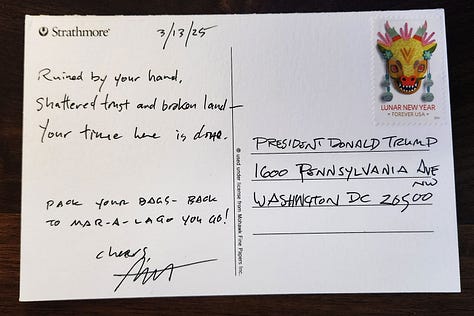 Strathmore®
3/13/25
Ruined by your hand,
Shattered trust and broken land—
Your time here is done.
PACK YOUR BAGS- BACK
TO MAR-A-LAGO YOU GO!
cheers,
® used under license from Mohawk Fine Papers Inc.
LUNAR NEW YEAR
• FOREVER USA •
PRESIDENT DONALD TRUMP
1600 PENNSYLVANIA AVE
NW
WASHINGTON DC 20500